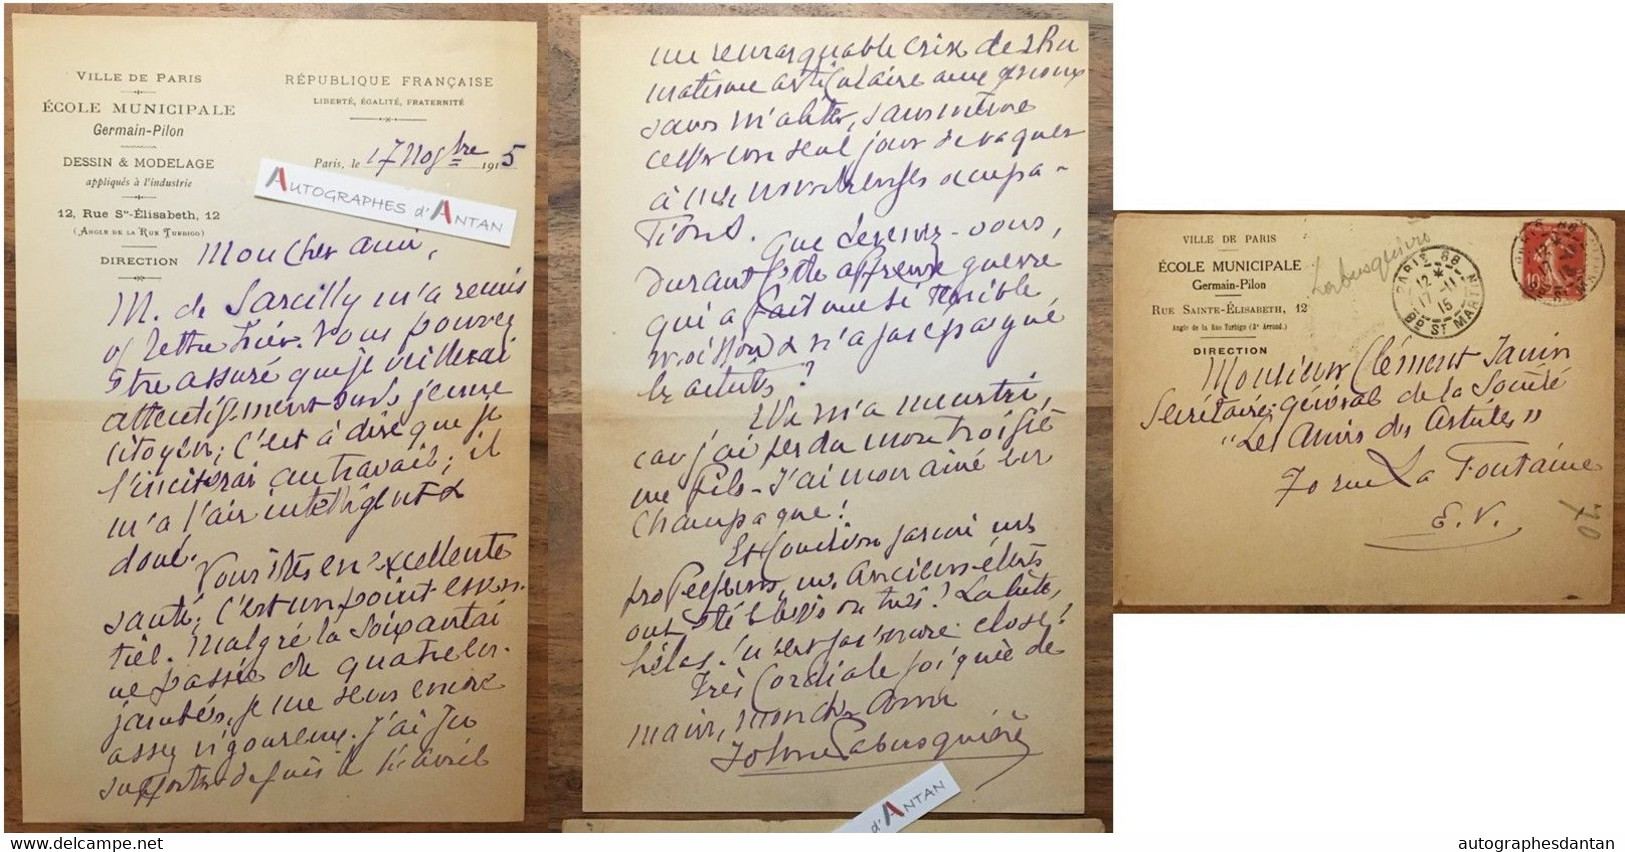 VILLE DE PARIS
ÉCOLE MUNICIPALE
Germain-Pilon
DESSIN & MODELAGE
appliqués à l'industrie
12, Rue Ste-Élisabeth, 12
(ANGLE DE LA RUE TURBIGO)
DIRECTION
RÉPUBLIQUE FRANÇAISE
LIBERTÉ, ÉGALITÉ, FRATERNITÉ
Paris, le 17 Novbre 1915
AUTOGRAPHES d'ANTAN
Mon cher ami,
M. de Sarcilly m'a remis
lettre hier. Vous pouvez
être assuré que je veillerai
attentivement sur le jeune
citoyen; c'est à dire que je
l'inciterai au travail; il
m'a l'air intelligent &
doué.
Vous êtes en excellente
santé; c'est un point essen-
tiel. Malgré la soixantai
ne passée de quatre
je me sens encore
assez vigoureux. J'ai pu
supporter depuis le avril
une remarquable crise de rhu
matisme articulaire aux genoux
sans m'aliter, sans même
cesser un seul jour de vaquer
à mes nombreuses occupa-
tions.
Que devenez-vous,
durant cette affreuse guerre
qui a fait une si terrible
moisson & n'a pas épargné
les artistes?
Elle m'a meurtri,
car j'ai perdu mon troisiè
me fils - J'ai mon aîné en
Champagne!
Et combien parmi mes
professeurs, mes anciens élèves
ont été blessés ou tués! La liste,
hélas! n'est pas encore close!
Très cordiale poignée de
main, mon cher ami
Labusquière
d'ANTAN
VILLE DE PARIS
ÉCOLE MUNICIPALE
Germain-Pilon
RUE SAINTE-ÉLISABETH, 12
Angle de la Rue Turbigo (3e Arrond.)
DIRECTION
Labusquière
PARIS-88
12
17-11
15
Bd ST MARTIN
10
Monsieur Clément Janin
Secrétaire général de la Société
"Les Amis des Artistes"
70 rue La Fontaine
E.V.
70
autographesdantan